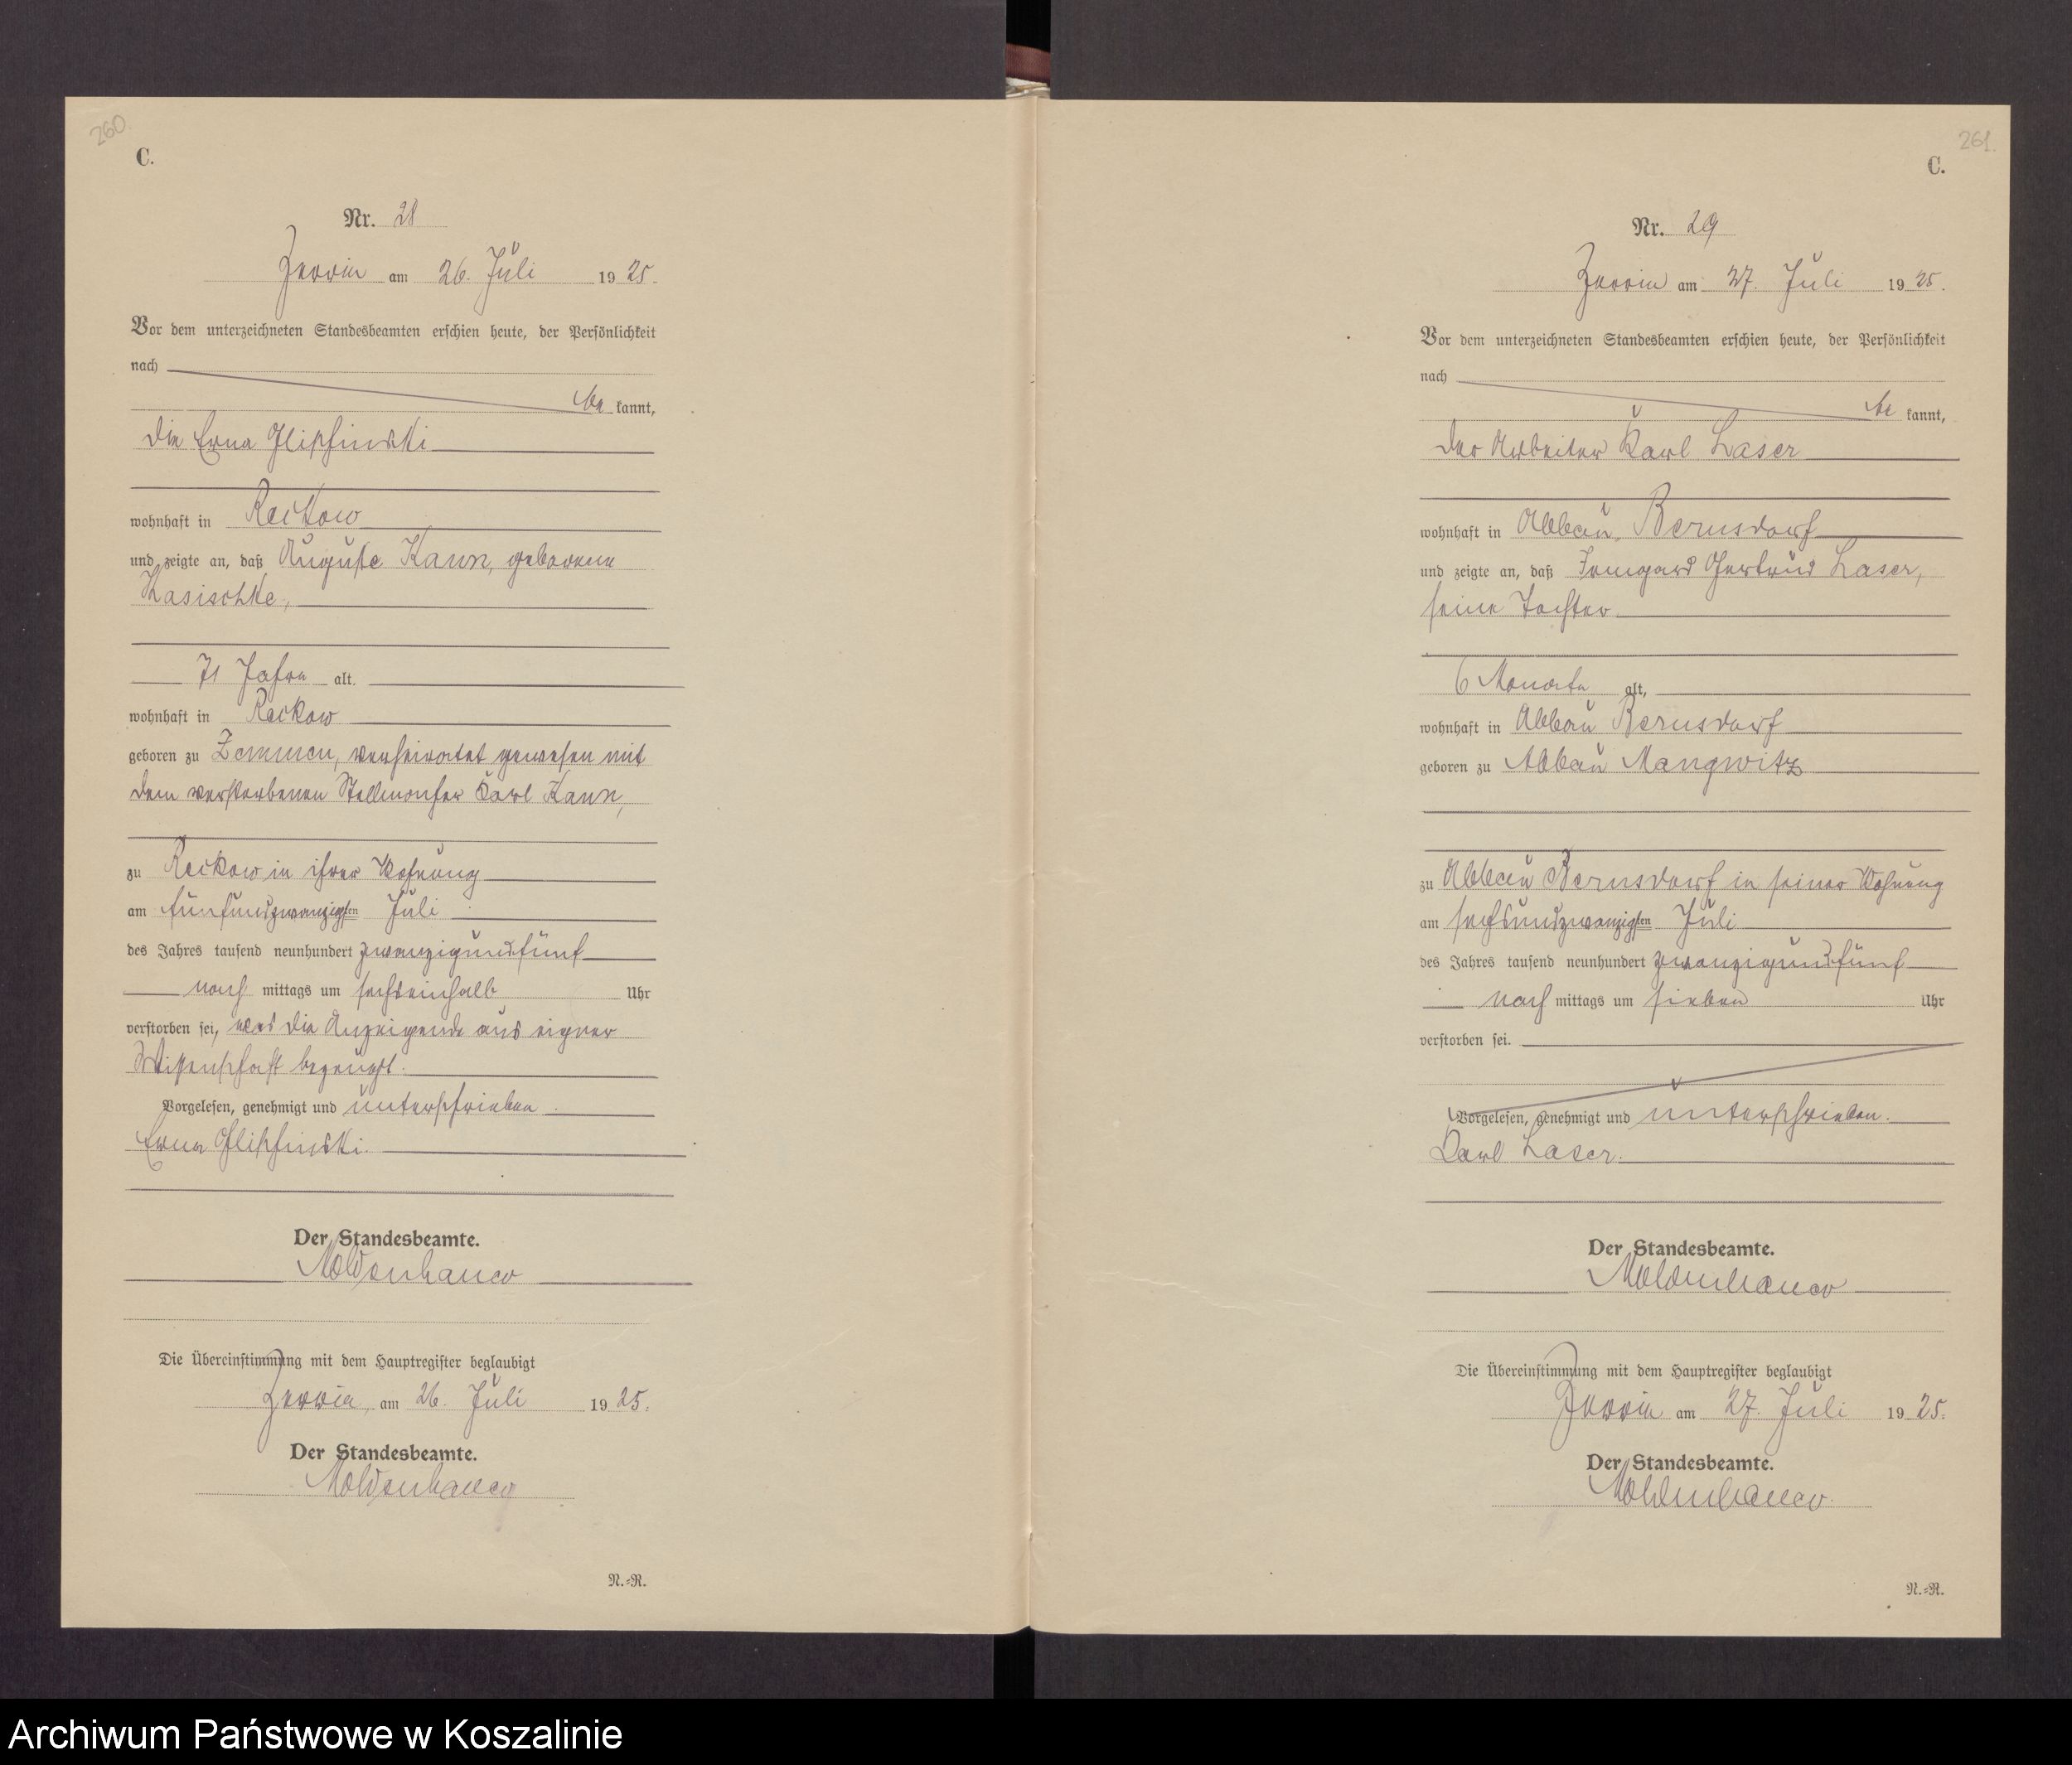 260
C.
Nr. 28
Zerrin am 26. Juli 1925.
Vor dem unterzeichneten Standesbeamten erschien heute, der Persönlichkeit
nach
be kannt,
die Erna Glischinski
wohnhaft in Reckow
und zeigte an, daß Auguste Kann, geborene
Kasischke,
71 Jahre alt.
wohnhaft in Reckow
geboren zu Zemmen, verheiratet gewesen mit
dem verstorbenen Stellmacher Karl Kann,
zu Reckow in ihrer Wohnung
am fünfundzwanzigsten Juli
des Jahres tausend neunhundert zwanzigundfünf
nach mittags um sechseinhalb Uhr
verstorben sei, was die Anzeigende aus eigner
Wissenschaft bezeugt.
Vorgelesen, genehmigt und unterschrieben.
Erna Glischinski.
Der Standesbeamte.
Moldenhauer
Die Übereinstimmung mit dem Hauptregister beglaubigt
Zerrin, am 26. Juli 1925.
Der Standesbeamte.
Moldenhauer
N.=R.
261.
C.
Nr. 29
Zerrin am 27. Juli 1925.
Vor dem unterzeichneten Standesbeamten erschien heute, der Persönlichkeit
nach
be kannt,
der Arbeiter Karl Laser
wohnhaft in Abbau Bernsdorf
und zeigte an, daß Irmgard Gertrud Laser,
seine Tochter
6 Monate alt,
wohnhaft in Abbau Bernsdorf
geboren zu Abbau Mangwitz
zu Abbau Bernsdorf in seiner Wohnung
am sechsundzwanzigsten Juli
des Jahres tausend neunhundert zwanzigundfünf
nach mittags um sieben Uhr
verstorben sei.
Vorgelesen, genehmigt und unterschrieben.
Karl Laser.
Der Standesbeamte.
Moldenhauer
Die Übereinstimmung mit dem Hauptregister beglaubigt
Zerrin am 27. Juli 1925.
Der Standesbeamte.
Moldenhauer
N.=R.
Archiwum Państwowe w Koszalinie